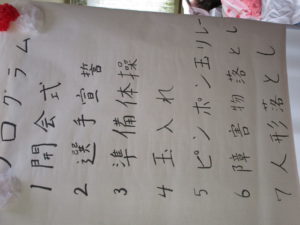 プログラム
1 開会式
2 選手宣誓
3 準備体操
4 玉入れ
5 ピンポン玉リレー
6 障害物落とし
7 人形落とし